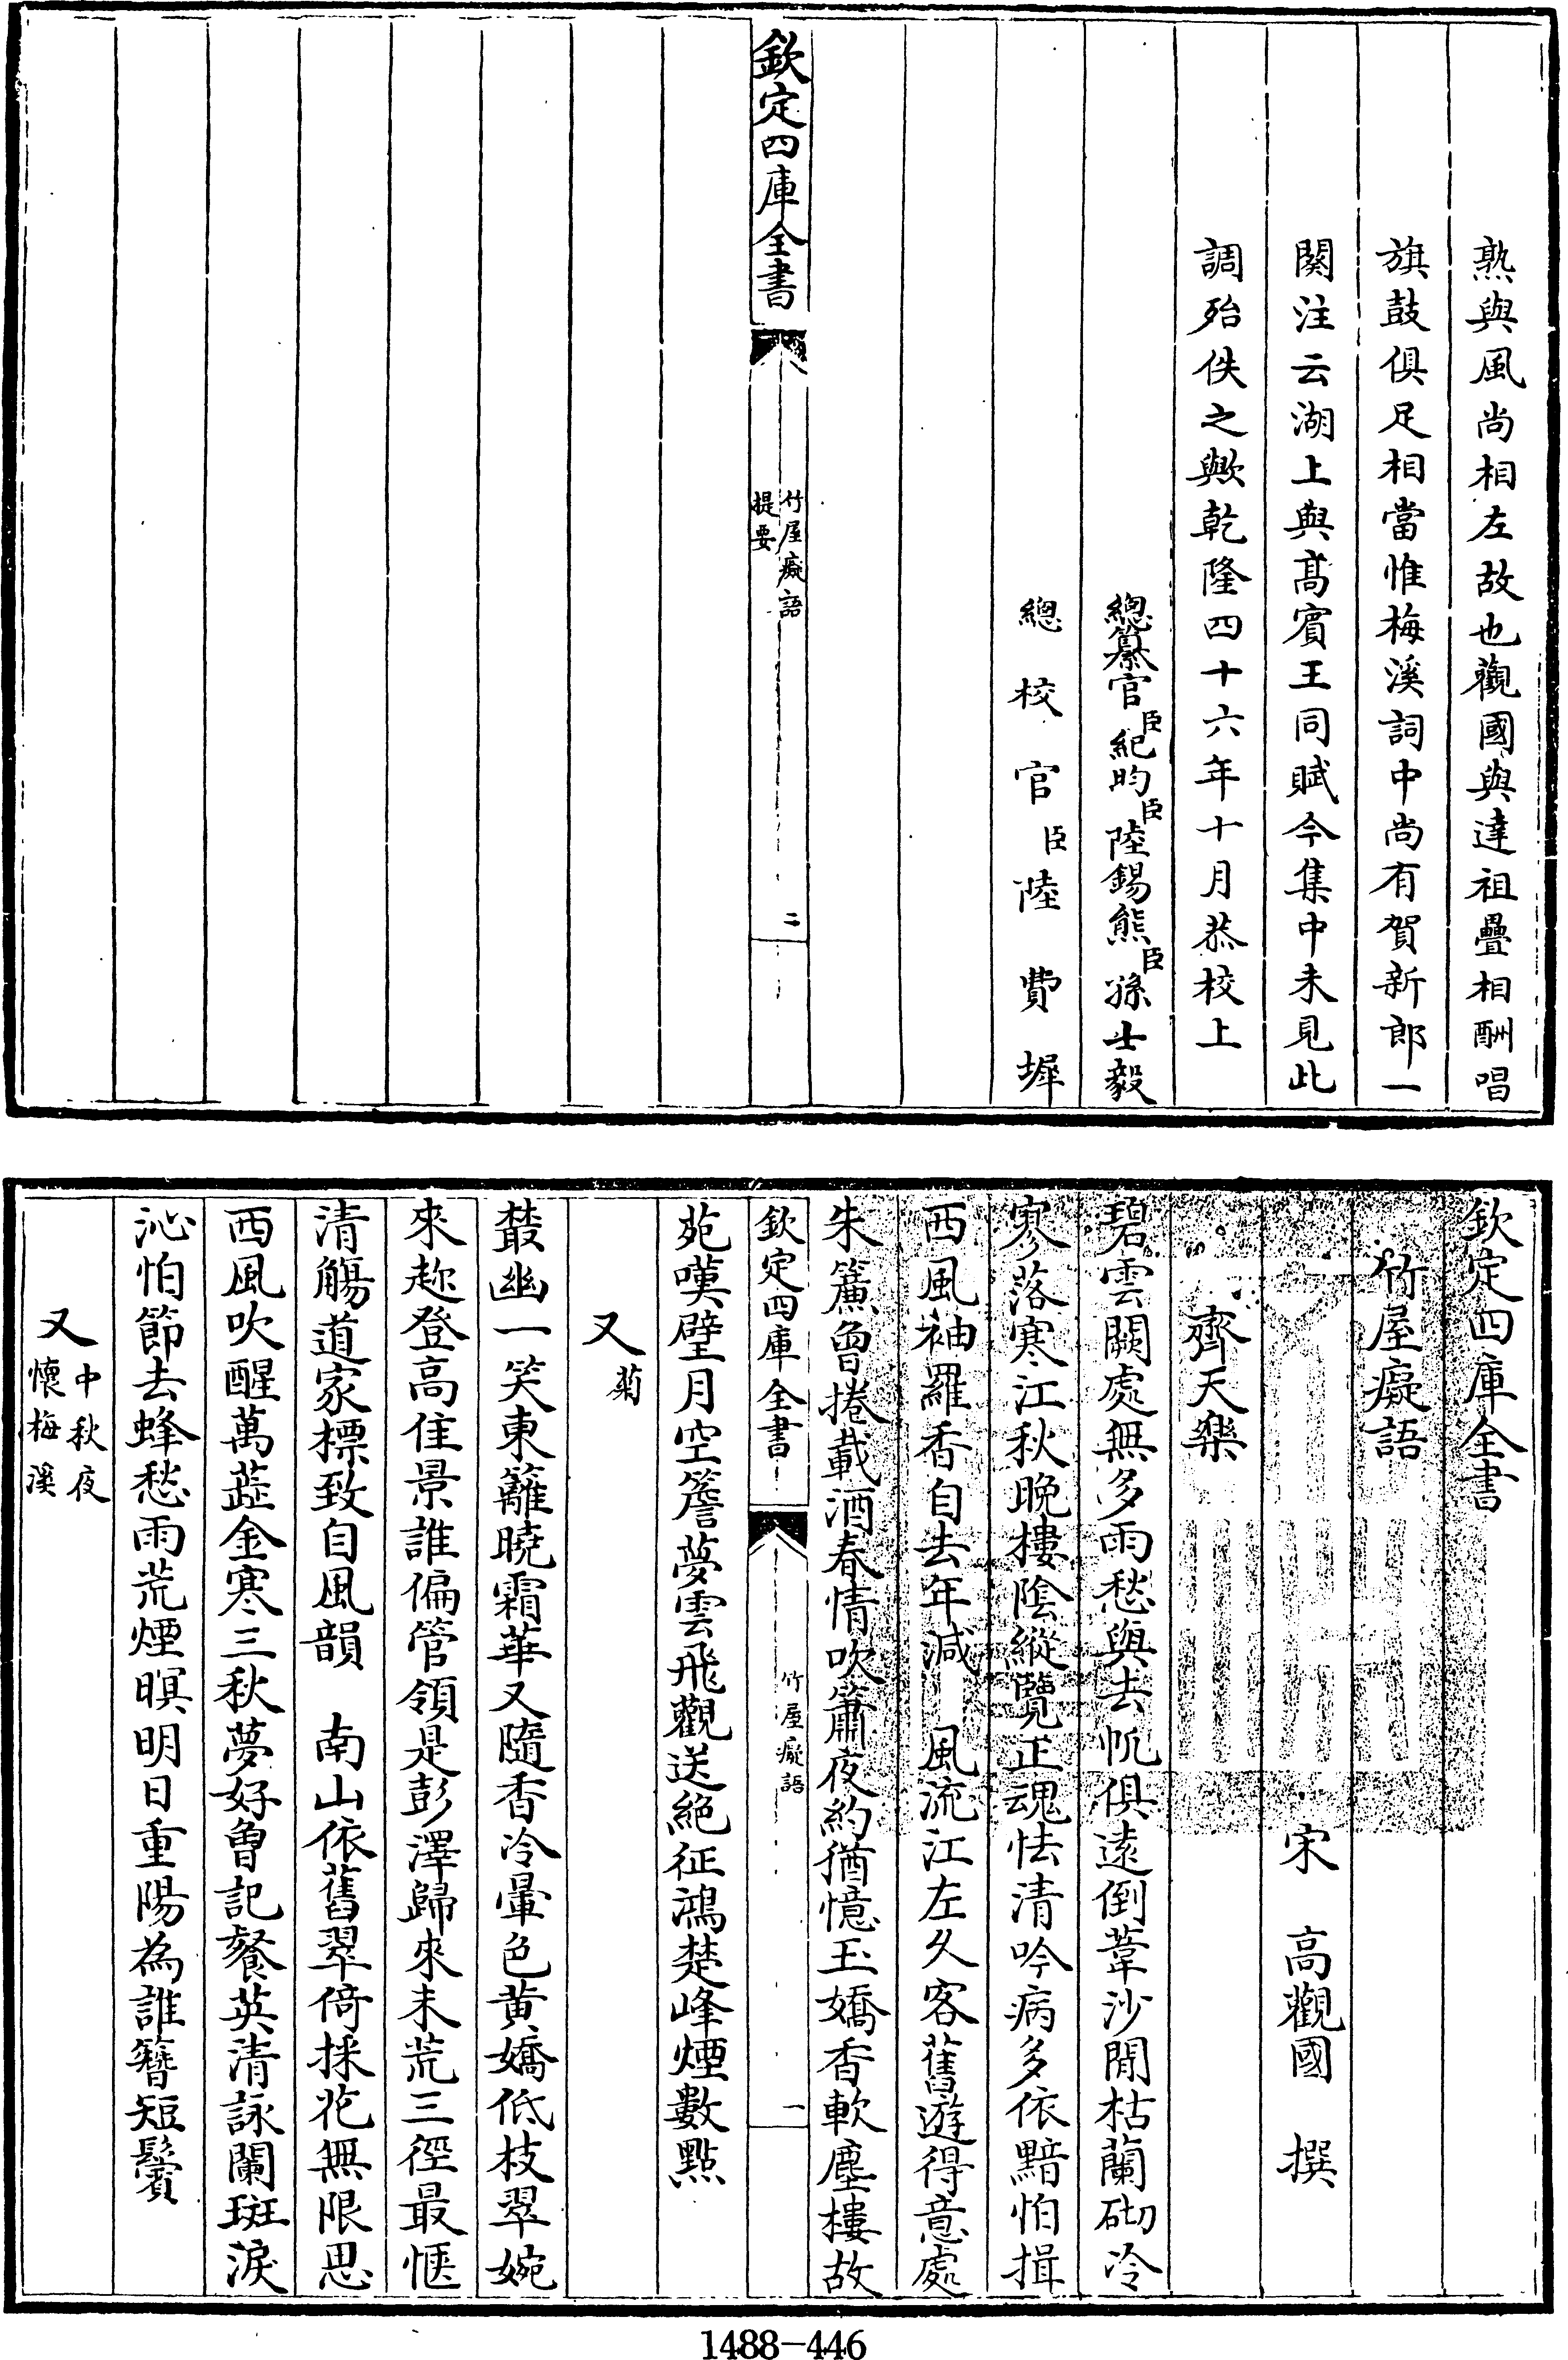 熟與風尚相左故也觀國與達祖疊相酬唱
旗鼓俱足相當惟梅溪詞中尚有賀新郎一
闋注云湖上與高賓王同賦今集中未見此
調殆佚之歟乾隆四十六年十月恭校上
總纂官臣紀昀臣陸錫熊臣孫士毅
總校官臣陸費墀
欽定四庫全書
竹屋癡語
提要
二
欽定四庫全書
竹屋癡語
宋 高觀國 撰
齊天樂
碧雲闕處無多雨愁與去帆俱遠倒葦沙閒枯蘭砌冷
寥落寒江秋晚樓陰縱覽正魂怯清吟病多依黯怕揖
西風袖羅香自去年減 風流江左久客舊遊得意處
朱簾曾捲載酒春情吹簫夜約猶憶玉嬌香軟塵樓故
欽定四庫全書
竹屋癡語
一
苑嘆壁月空簷夢雲飛觀送絕征鴻楚峰煙數點
又菊
叢幽一笑東籬曉霜華又隨香冷暈色黃嬌低枝翠婉
來趂登高佳景誰偏管領是彭澤歸來未荒三徑最愜
清觴道家標致自風韻 南山依舊翠倚採花無限思
西風吹醒萬蘂金寒三秋夢好曾記餐英清詠闌斑淚
沁怕節去蜂愁雨荒煙暝明日重陽為誰簪短鬢
又中秋夜
懷梅溪
1488-446